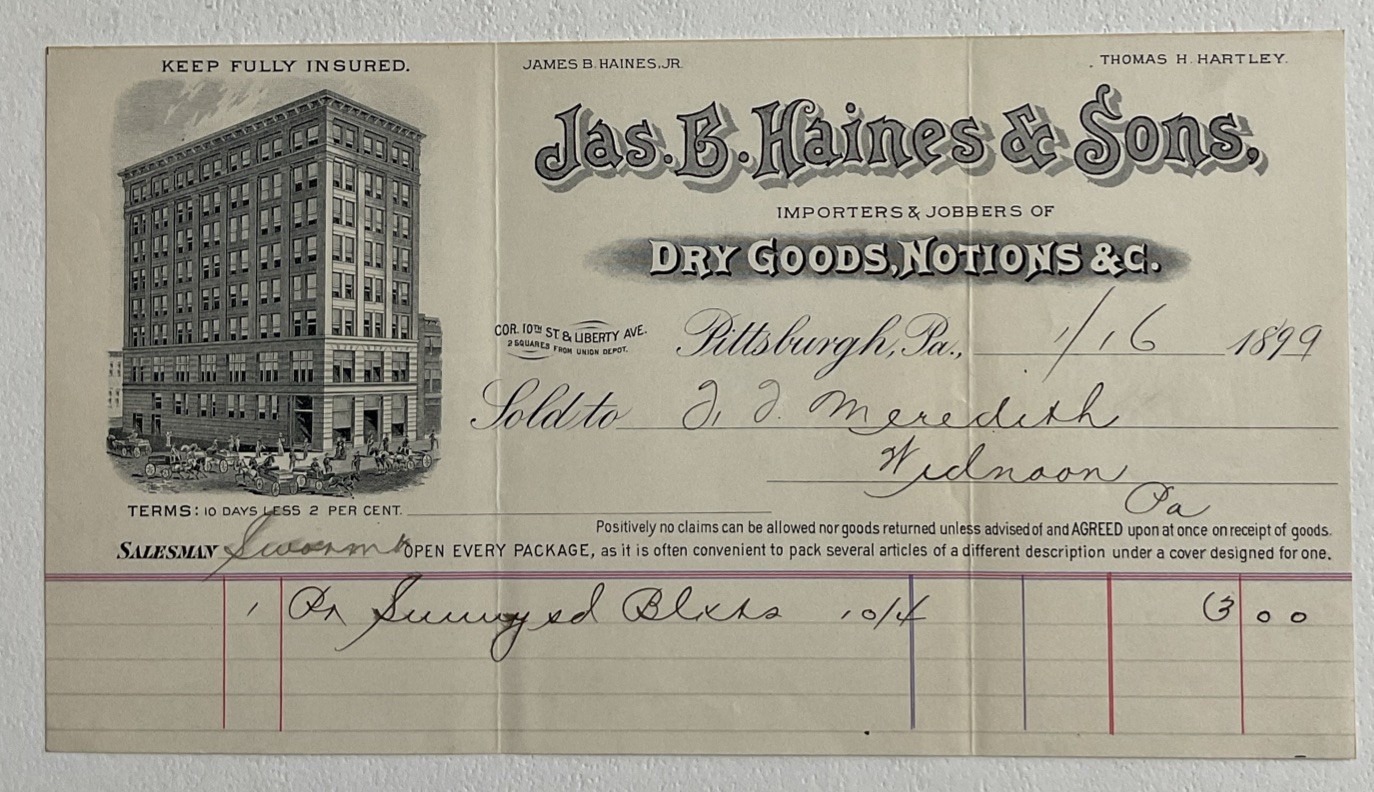 KEEP FULLY INSURED.
JAMES B. HAINES, JR.
THOMAS H. HARTLEY.
Jas. B. Haines & Sons,
IMPORTERS & JOBBERS OF
DRY GOODS, NOTIONS &C.
COR. 10TH ST. & LIBERTY AVE.
2 SQUARES FROM UNION DEPOT.
Pittsburgh, Pa., 1/16 1899
Sold to Meredith
Widnoon
Pa
TERMS: 10 DAYS LESS 2 PER CENT.
Positively no claims can be allowed nor goods returned unless advised of and AGREED upon at once on receipt of goods.
SALESMAN
OPEN EVERY PACKAGE, as it is often convenient to pack several articles of a different description under a cover designed for one.
1 Pr 10/4 3 00